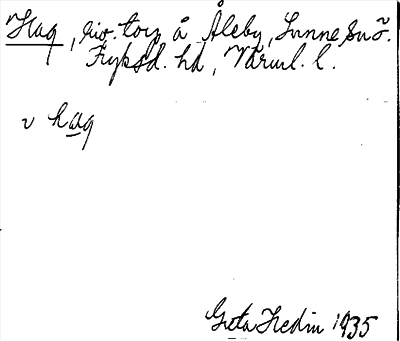 Hag, liv. torp å Åleby, Sunne sn.
Fryksd. hd, Värml. l.
v hag
Greta Hedin 1935